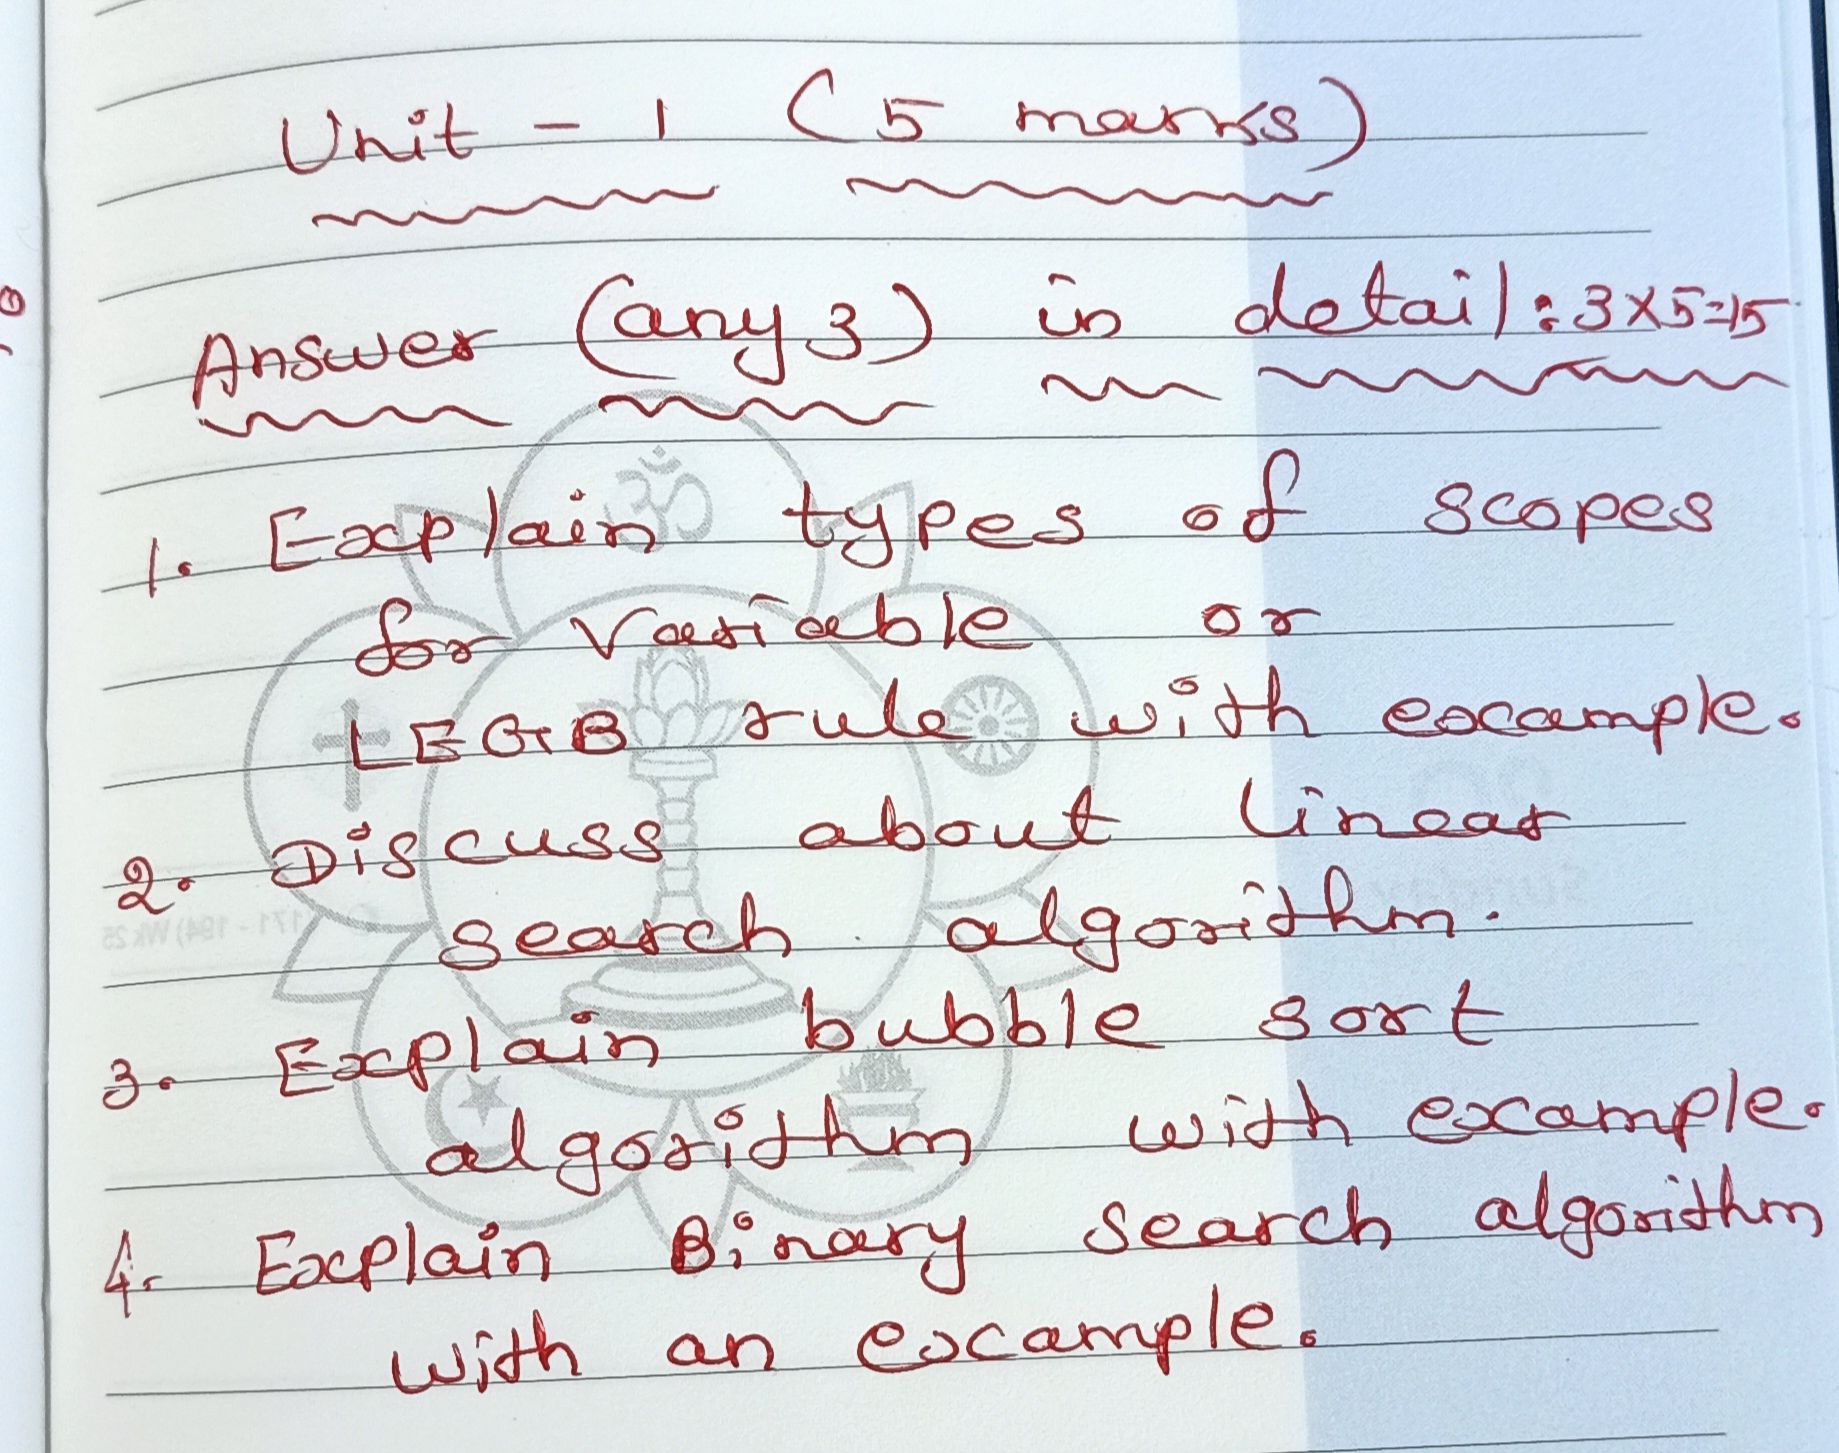 Unit - 1 (5 marks)
Answer (any 3) in detail: 3x5=15
1. Explain types of scopes
for variable or
LEGB rule with example.
2. Discuss about linear
search algorithm.
3. Explain bubble sort
algorithm with example.
4. Explain Binary search algorithm
with an example.